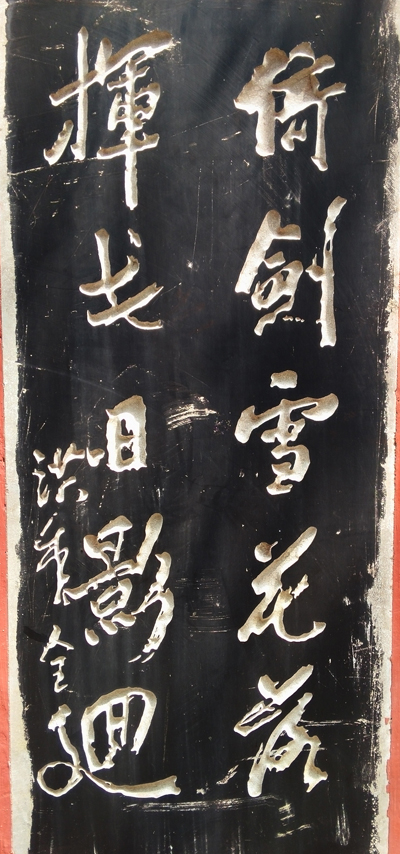 倚劍雪花落
揮戈日影廻
洪秀全